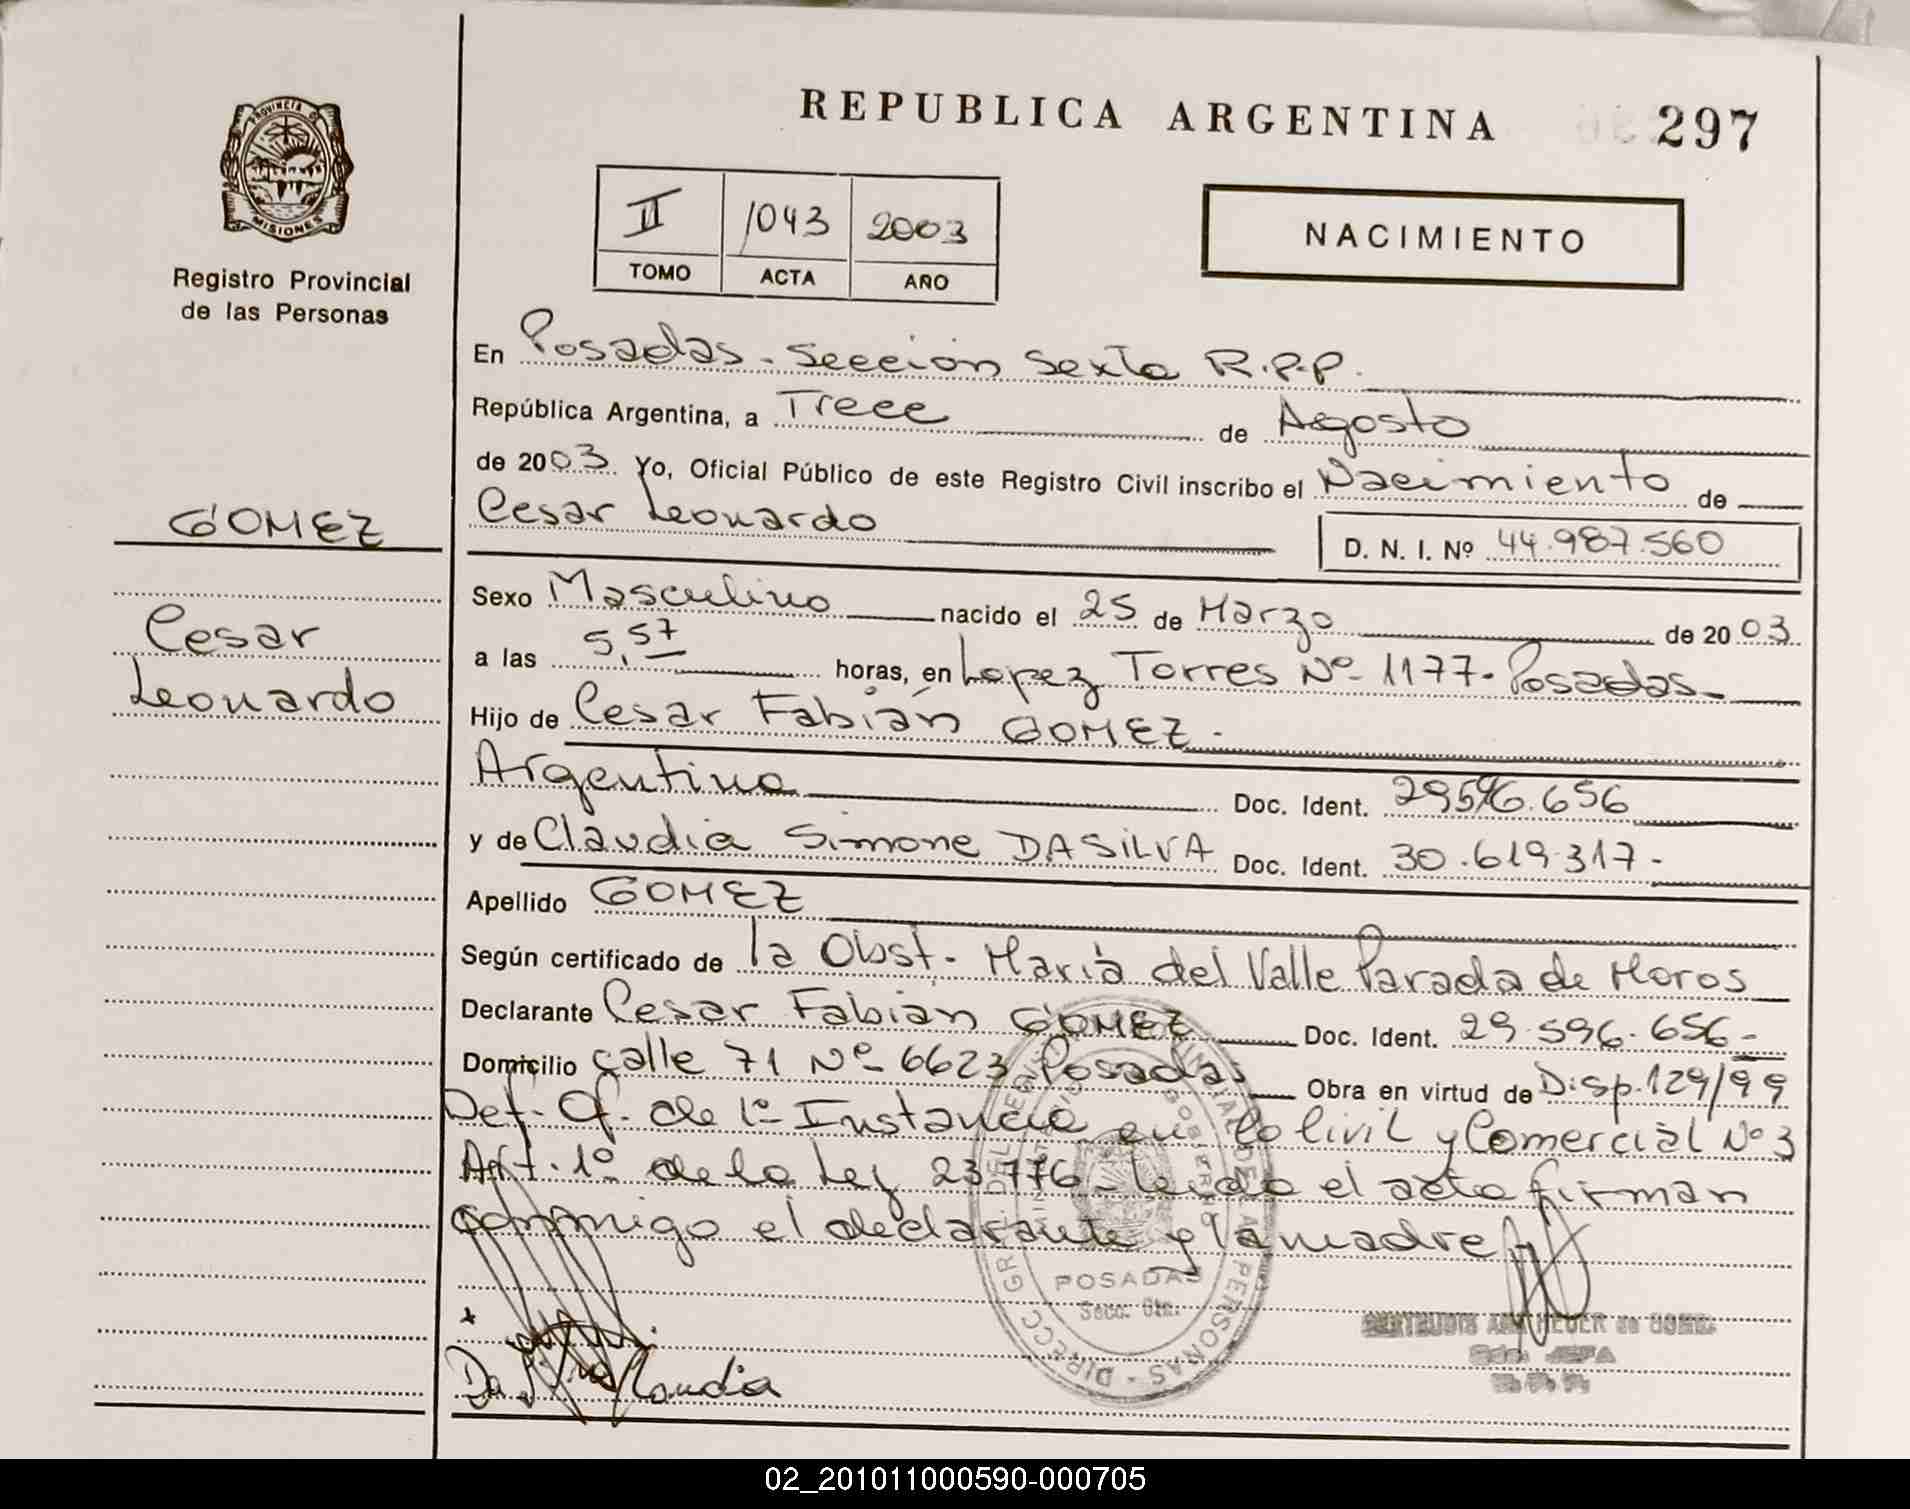 REPUBLICA ARGENTINA
297
PROVINCIA D
MISIONES
Registro Provincial
de las Personas
II 1043 2003
TOMO ACTA AÑO
NACIMIENTO
En Posadas - Sección Sexta R.P.P.
República Argentina, a Trece de Agosto
de 2003 Yo, Oficial Público de este Registro Civil inscribo el Nacimiento de
GOMEZ
Cesar Leonardo
D. N. I. Nº 44.987.560
Cesar
Leonardo
Sexo Masculino nacido el 25 de Marzo de 2003
a las 5,57 horas, en Lopez Torres Nº 1177- Posadas-
Hijo de Cesar Fabián GOMEZ -
Argentino Doc. Ident. 29596.656
y de Claudia Simone DA SILVA Doc. Ident. 30.619.317-
Apellido GOMEZ
Según certificado de la Obst. María del Valle Parada de Moros
Declarante Cesar Fabián GOMEZ Doc. Ident. 29.596.656-
Domicilio calle 71 Nº 6623 Posadas Obra en virtud de Disp. 129/99
Def. Of. de 1º Instancia en lo Civil y Comercial Nº 3
Art. 1º de la Ley 23.776- Leida el acta firman
conmigo el declarante y la madre
POSADAS
Da Silva Claudia
02_201011000590-000705